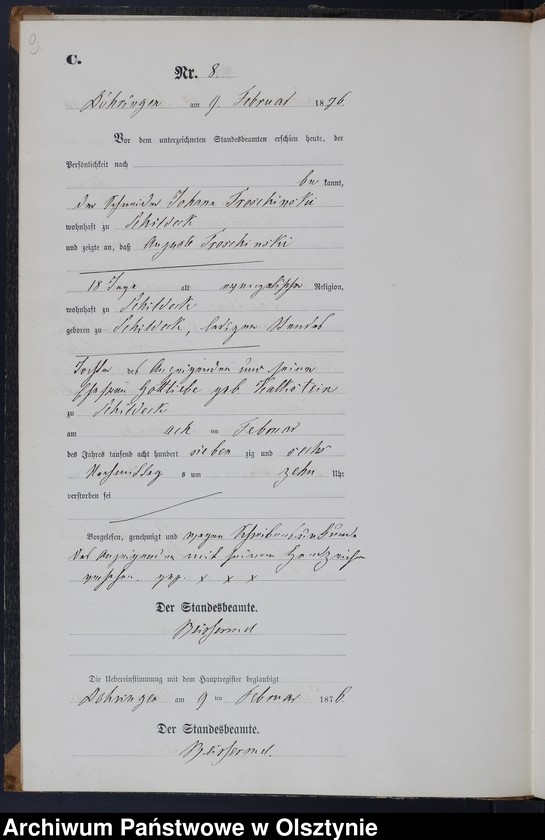 9.
C.
Nr. 8.
Döhringen am 9 Februar 1876.
Vor dem unterzeichneten Standesbeamten erschien heute, der
Persönlichkeit nach
be kannt,
der Schneider Johann Troschinski
wohnhaft zu Schildeck
und zeigte an, daß Auguste Troschinski
18 Tage alt evangelischer Religion,
wohnhaft zu Schildeck
geboren zu Schildeck, ledigen Standes
Tochter des Anzeigenden und seiner
Ehefrau Gottliebe geb. Kalkstein
zu Schildeck
am acht en Februar
des Jahres tausend acht hundert sieben zig und sechs
Nachmittag s um zehn Uhr
verstorben sei
Vorgelesen, genehmigt und wegen Schreibensunkunde
des Anzeigenden mit seinem Handzeichen
versehen. gez. x x x
Der Standesbeamte.
Die Uebereinstimmung mit dem Hauptregister beglaubigt
Döhringen am 9 ten Februar 1876.
Der Standesbeamte.
Archiwum Państwowe w Olsztynie